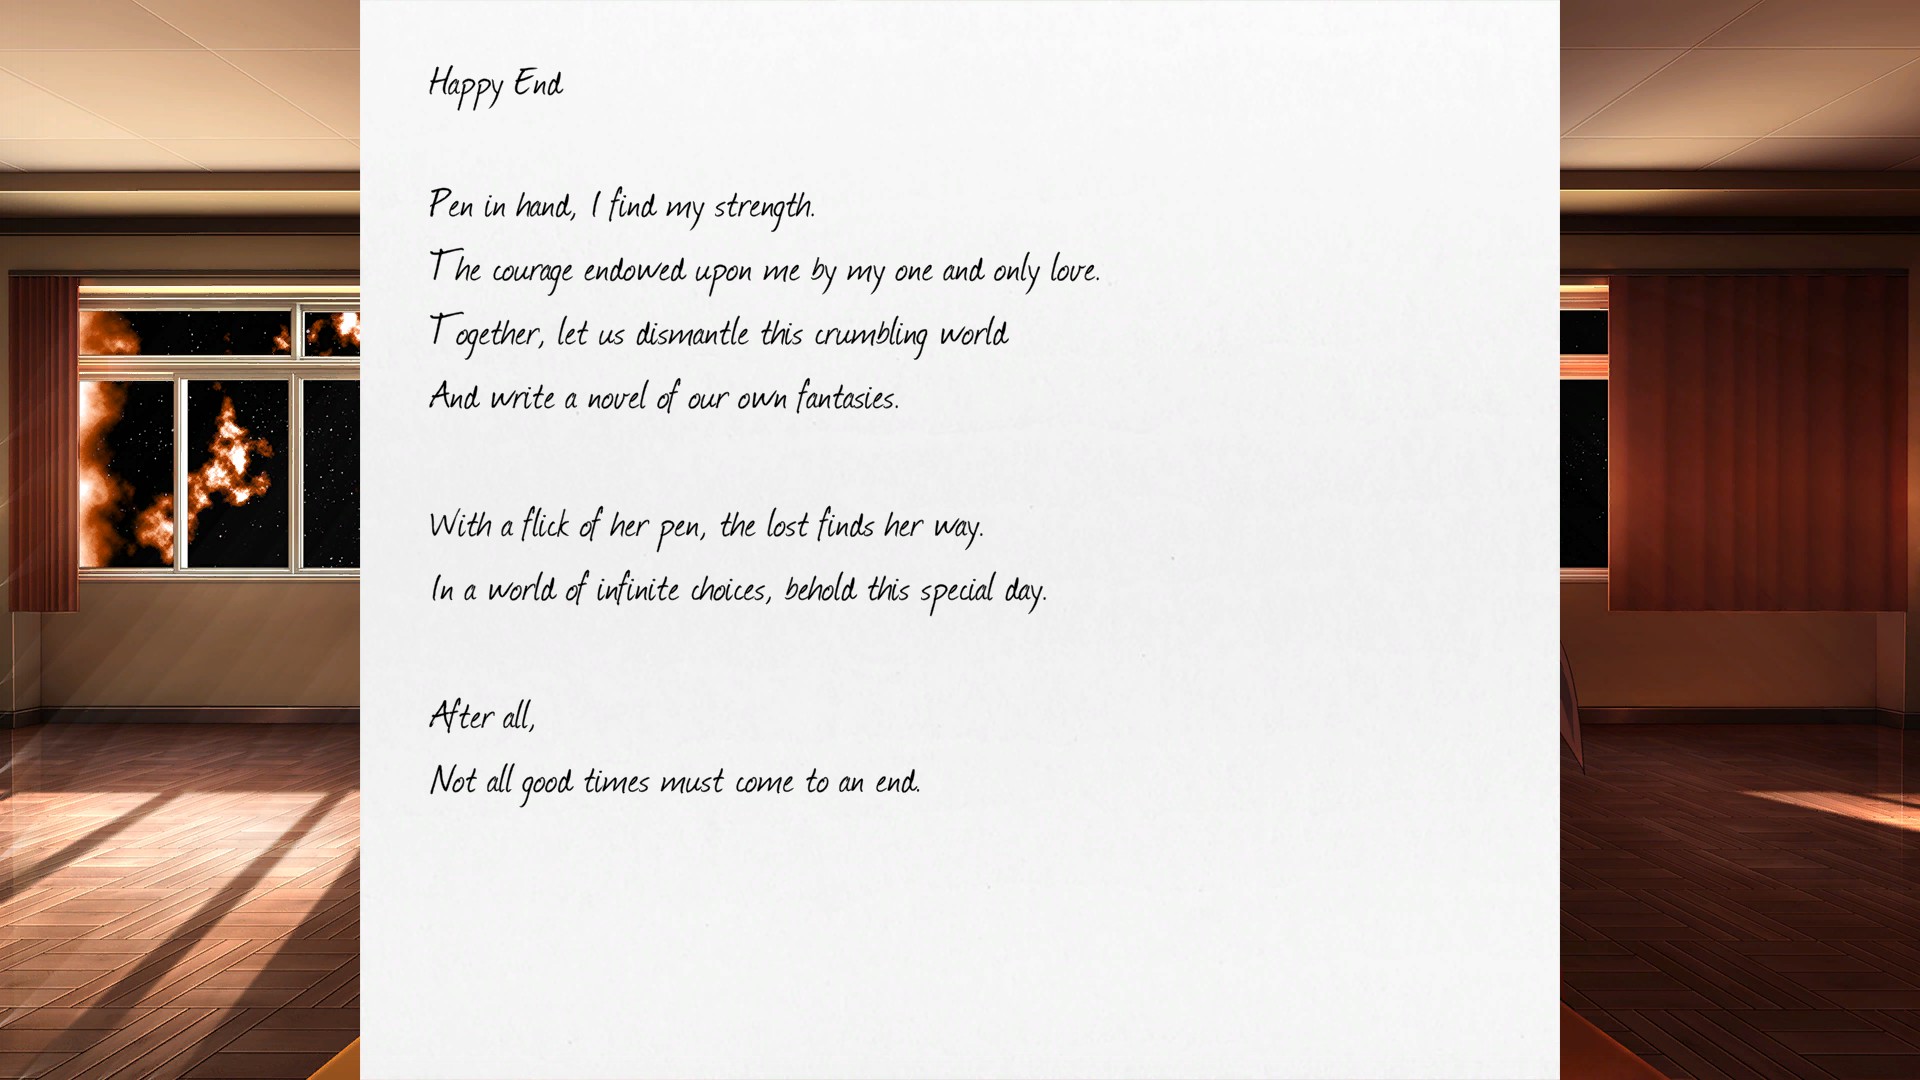 Happy End
Pen in hand, I find my strength.
The courage endowed upon me by my one and only love.
Together, let us dismantle this crumbling world
And write a novel of our own fantasies.
With a flick of her pen, the lost finds her way.
In a world of infinite choices, behold this special day.
After all,
Not all good times must come to an end.